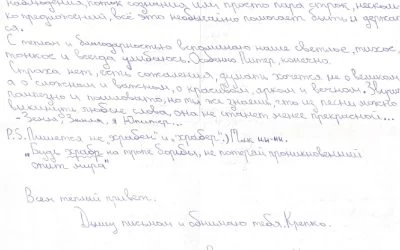 наблюдения, поток сознания или просто пара строк, несколь-
ко предложений, всё это необычайно помогает быть и держать-
ся.
С теплом и благодарностью вспоминаю наше светлое, тихое,
тонкое и всегда улыбаюсь. Особенно Питер, конечно.
Страха нет, есть сожаления, думать хочется не о великом
а о сложном и важном, о красивом, ярком и вечном. Звучит
помпезно и пошловато, но ты же знаешь, что из песни можно
выкинуть любые слова, она не станет менее прекрасной...
- Земля, Земля, я Юпитер...
P.S. Пишется не "храбен" и "храбер" ;) Мяк ни-ни.
"Будь храбр на тропе борьбы, не потеряй проникновенный
мира"
Всем теплый привет.
Дышу письмом и обнимаю тебя. Крепко.